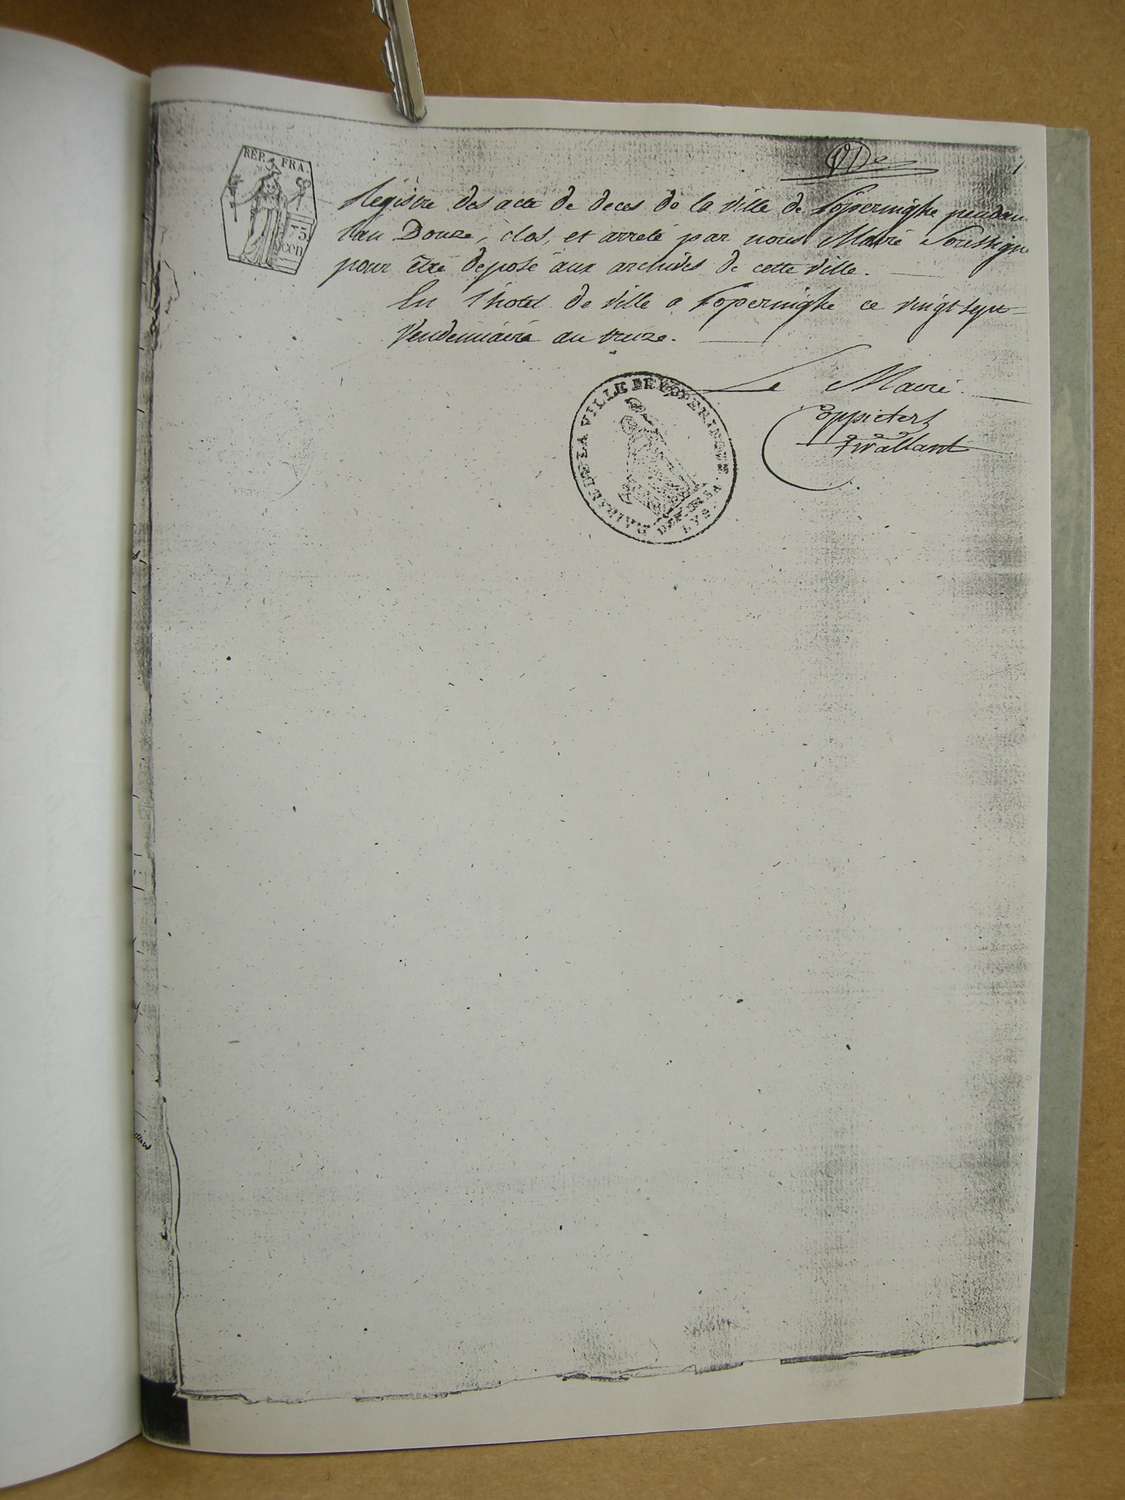 REP. FRA.
75
cen
1
Régistre des acte de deces de la ville de Poperinghe pendan
l'an Douze, clos, et arreté par nous Maire Soussigne
pour être deposé aux archives de cette ville.
En l'hotel de ville a Poperinghe ce vingt sept
Vendemiaire an treize.
Le Maire
MAIRIE DE LA VILLE DE POPERINGUE
DEP. DE LA
LYS